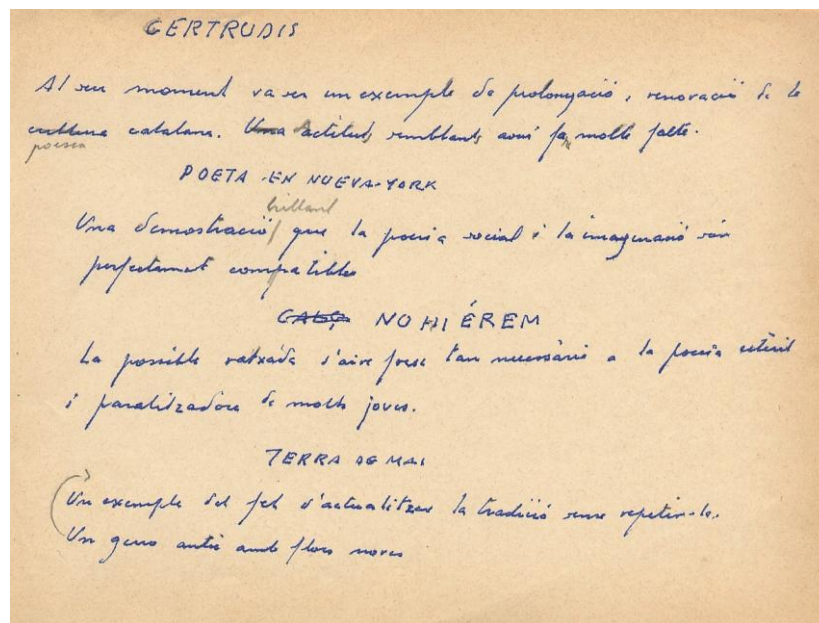 GERTRUDIS
Al seu moment va ser un exemple de prolongació i renovació de la
cultura catalana. Una actituds semblants avui fan molta falta.
poesia
POETA EN NUEVA-YORK
brillant
Una demostració que la poesia social i la imaginació són
perfectament compatibles
CALÇ NO HI ÉREM
La possible ratxada d'aire fresc tan necessària a la poesia estèril
i paralitzadora de molts joves.
TERRA DE MAI
Un exemple del fet d'actualitzar la tradició sense repetir-la.
Un gerro antic amb flors noves